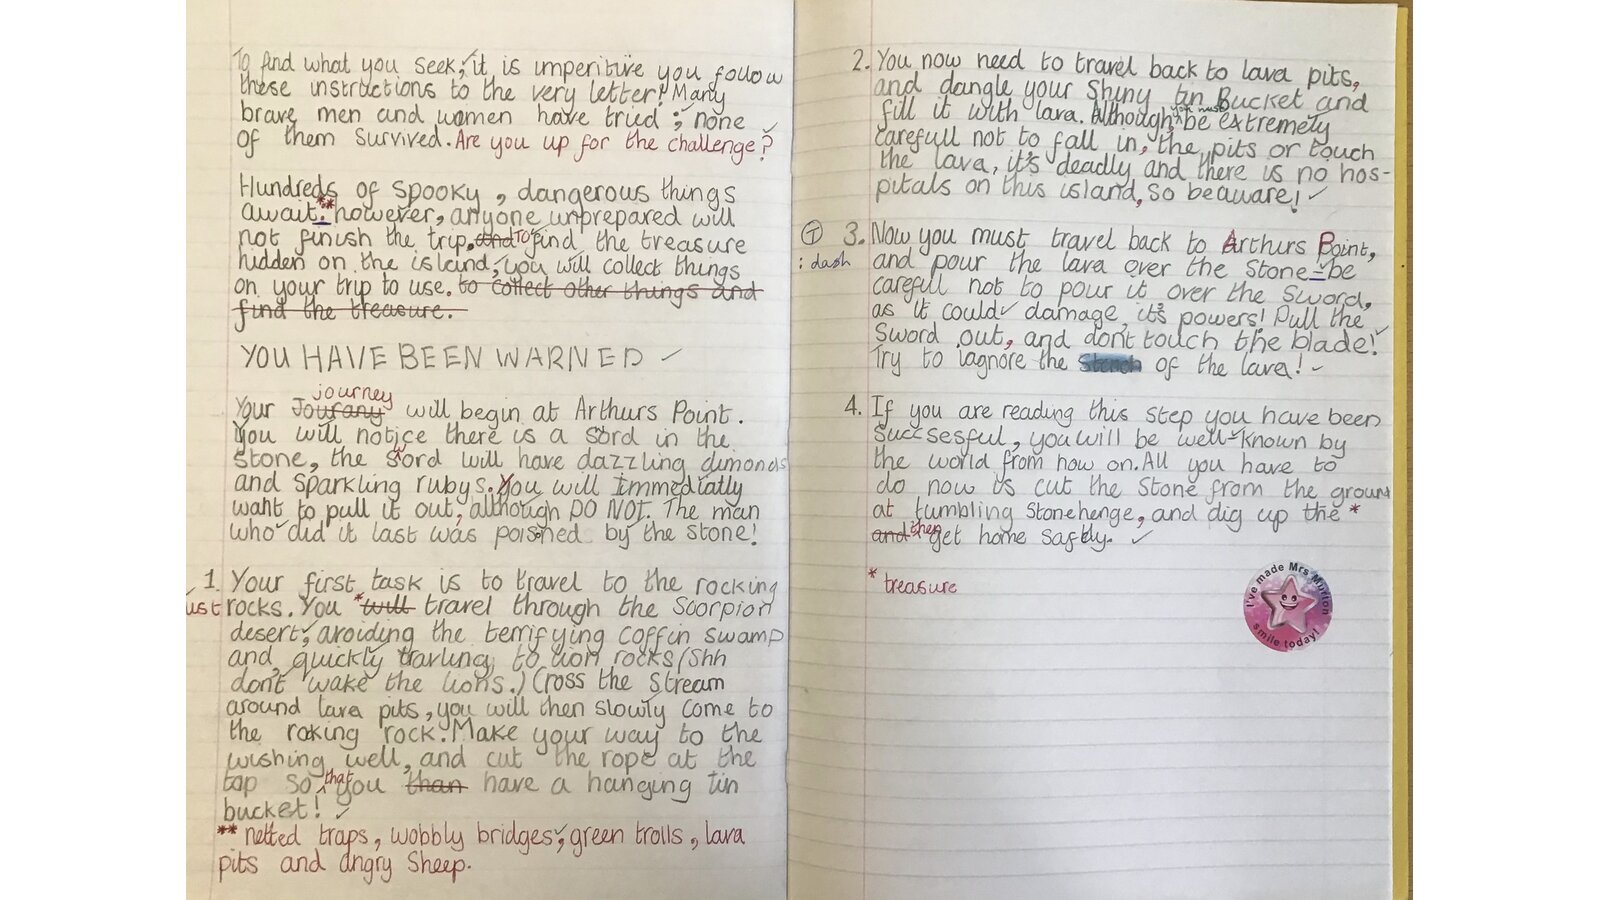 To find what you seek, it is imperitive you follow
these instructions to the very letter! Many
brave men and women have tried ; none
of them survived. Are you up for the challenge?
Hundreds of spooky, dangerous things
await.** however, anyone unprepared will
not finish the trip. and To find the treasure
hidden on the island, you will collect things
on your trip to use. to collect other things and
find the treasure.
YOU HAVE BEEN WARNED
journey
Your Jourany will begin at Arthurs Point.
You will notice there is a sord in the
stone, the sword will have dazzling dimonds
and sparkling rubys. You will Immediatly
want to pull it out, although DO NOT. The man
who did it last was poished by the stone!
1 Your first task is to travel to the rocking
ust rocks. You * will travel through the Scorpion
desert, avoiding the terrifying coffin swamp
and quickly travling to lion rocks (Shh
don't wake the lions.) Cross the Stream
around lava pits, you will then slowly come to
the roking rock. Make your way to the
wishing well, and cut the rope at the
top so that you than have a hanging tin
bucket!
** netted traps, wobbly bridges, green trolls, lava
pits and angry sheep.
2. You now need to travel back to lava pits,
and dangle your Shiny tin Bucket and
fill it with lava. Although, you must be extremely
carefull not to fall in, the pits or touch
the lava, it's deadly and there is no hos-
pitals on this island, so beaware!
T 3. Now you must travel back to Arthurs Point,
: dash and pour the lava over the Stone - be
careful not to pour it over the Sword,
as it could damage it's powers! Pull the
Sword out, and don't touch the blade!
Try to iagnore the Stench of the lava!
4. If you are reading this step you have been
succsesful, you will be well-known by
the world from now on. All you have to
do now is cut the Stone from the ground
at tumbling Stonehenge, and dig up the *
and then get home safely.
* treasure
I've made Mrs Murton
smile today!